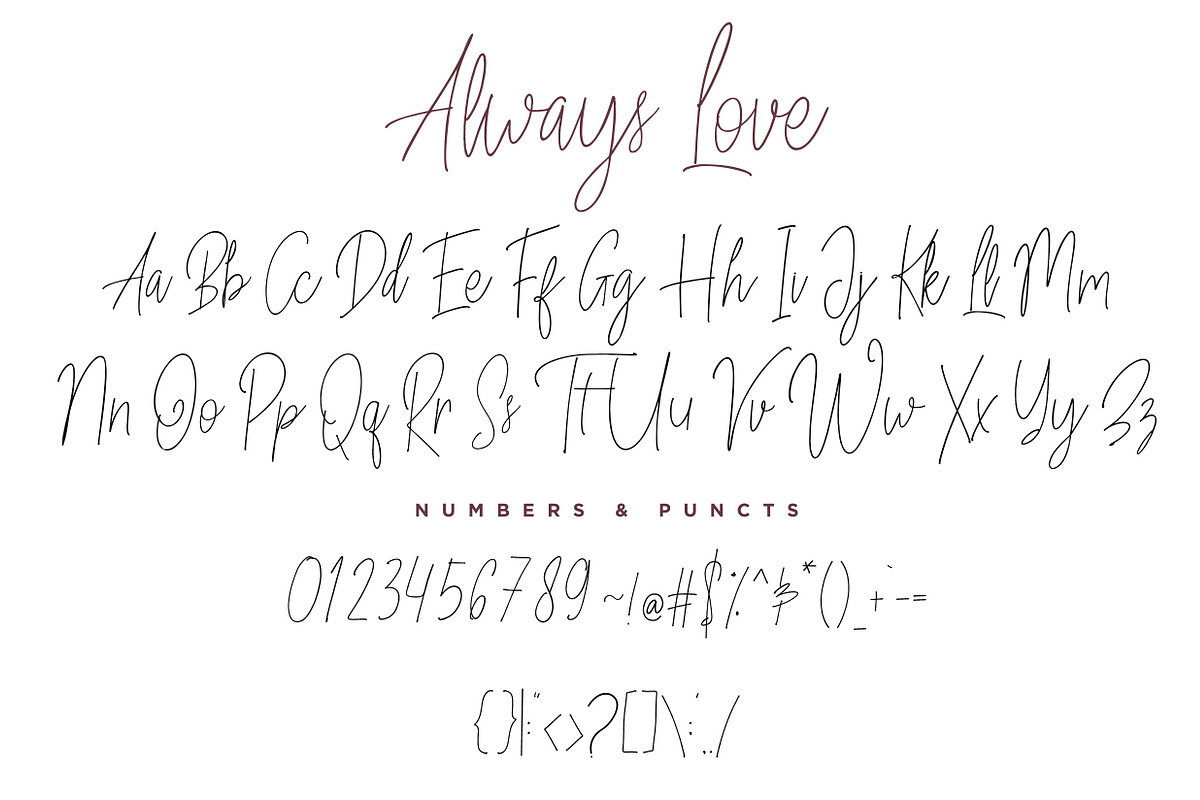 Always Love
Aa Bb Cc Dd Ee Ff Gg Hh Ii Jj Kk Ll Mm
Nn Oo Pp Qq Rr Ss Tt Uu Vv Ww Xx Yy Zz
NUMBERS & PUNCTS
0123456789 ~!@#$%^&*()_+`-=
{}|:"<>?[]\;',./